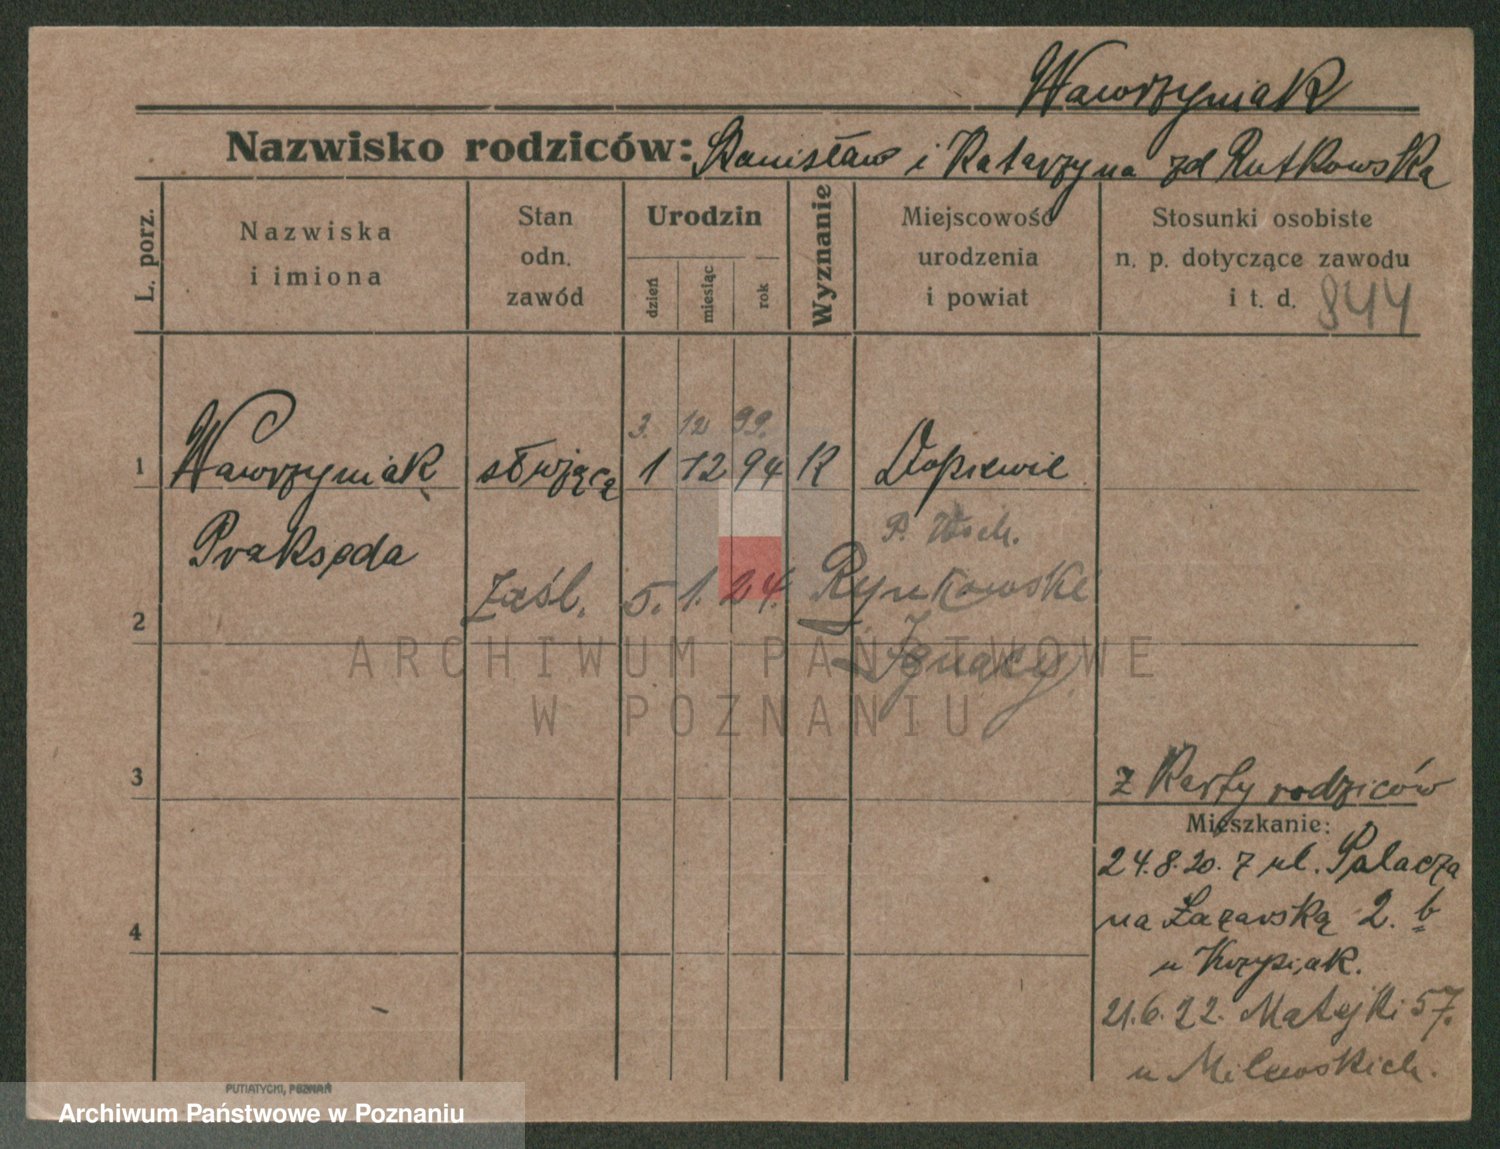 Wawrzyniak
Nazwisko rodziców: Stanisław i Katarzyna zd Rutkowska
L. porz.
Nazwiska
i imiona
Stan
odn.
zawód
Urodzin
dzień
miesiąc
rok
Wyznanie
Miejscowość
urodzenia
i powiat
Stosunki osobiste
n. p. dotyczące zawodu
i t. d. 844
3. 12 99.
1 Wawrzyniak służąca 1 12 94 K Dopiewie
Prakseda
P. Wsch.
2 zaśl. 5. 1. 24. Rynkowski
Ignacy
3
z Karty rodziców
Mieszkanie:
24.8.20. z ul. Palacza
na Łazarską 2. b
4
u Krzysiak.
21.6.22. Matejki 57.
u Milewskich.
PUTIATYCKI, POZNAŃ
ARCHIWUM PAŃSTWOWE
W POZNANIU
Archiwum Państwowe w Poznaniu